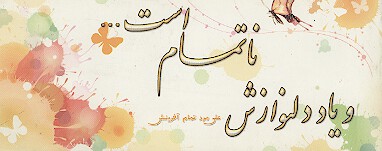 و یاد دلنوازش
ناتمام
است...